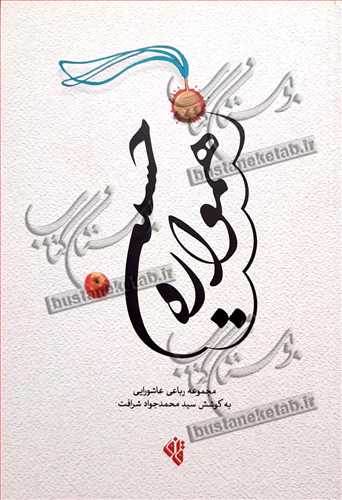 همواره
حسین
مجموعه رباعی عاشورایی
به کوشش سید محمدجواد شرافت
بوستان کتاب
bustaneketab.ir
بوستان کتاب
bustaneketab.ir
بوستان کتاب
bustaneketab.ir